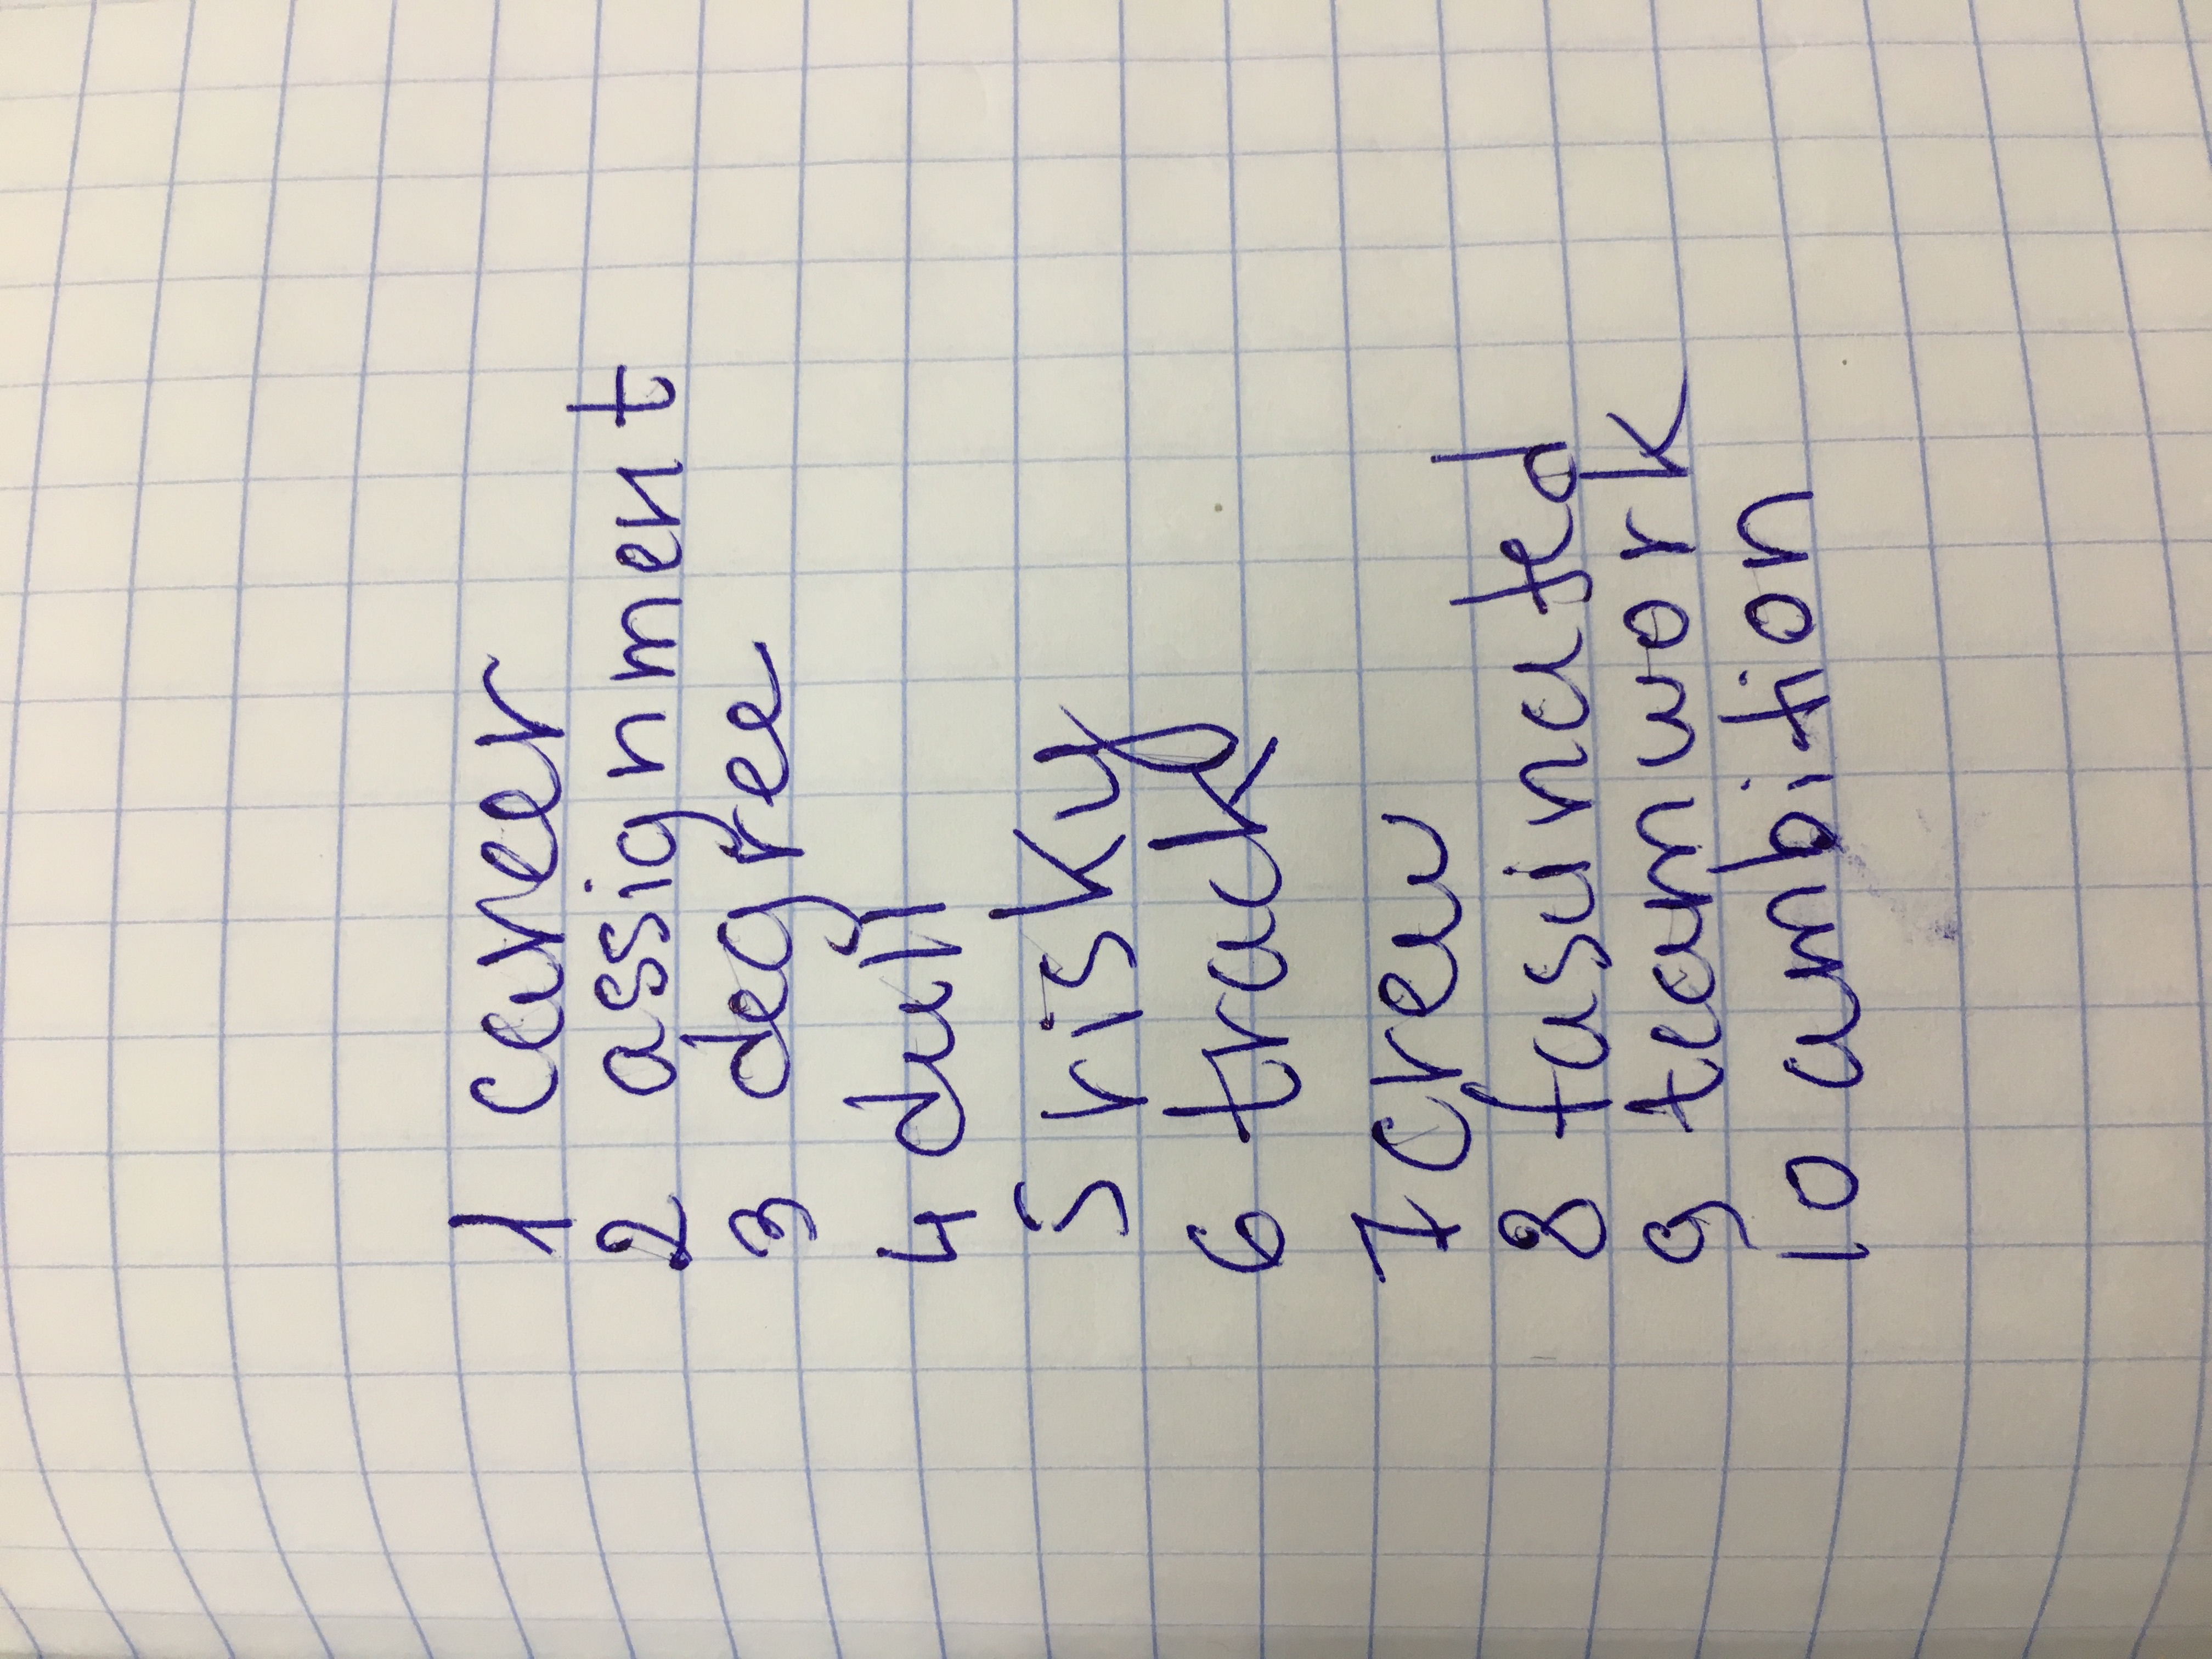 1 career
2 assignment
3 degree
4 dull
5 risky
6 track
7 crew
8 fasinated
9 teamwork
10 ambition